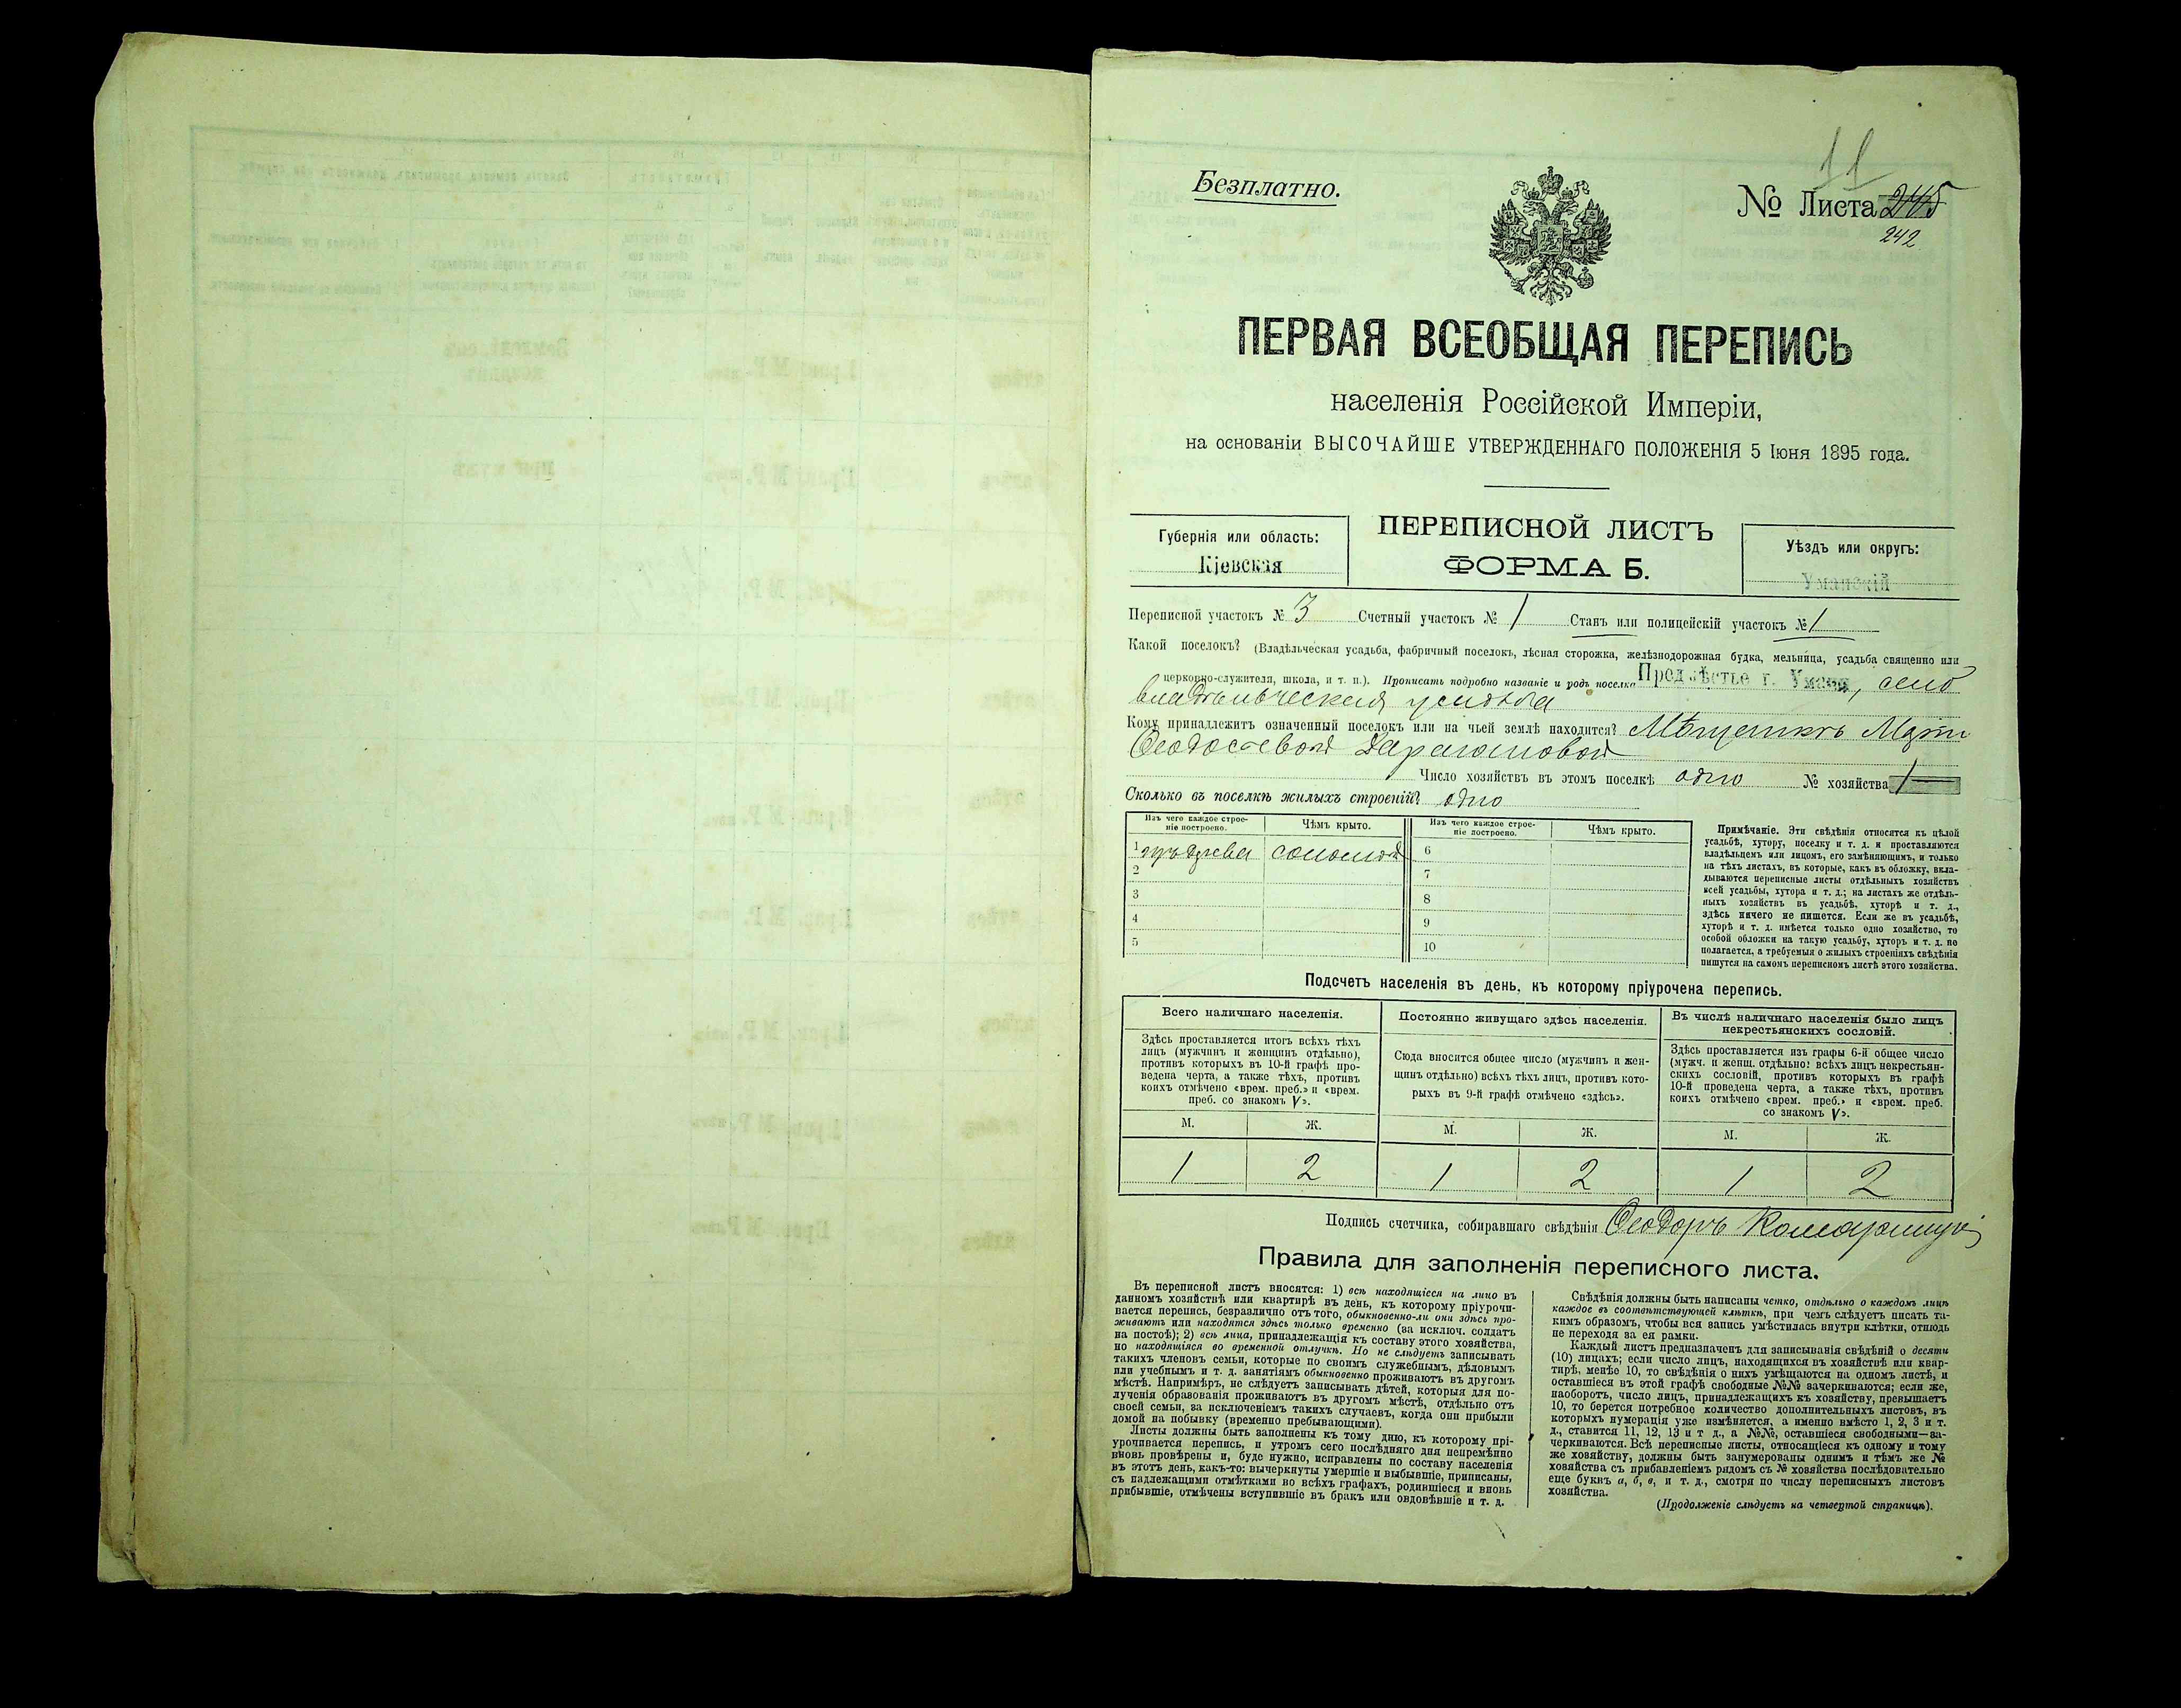 Безплатно.
11
№ Листа 245
242
ПЕРВАЯ ВСЕОБЩАЯ ПЕРЕПИСЬ
населенія Россійской Имперіи,
на основаніи ВЫСОЧАЙШЕ УТВЕРЖДЕННАГО ПОЛОЖЕНІЯ 5 Іюня 1895 года.
Губернія или область:
Кіевская
ПЕРЕПИСНОЙ ЛИСТЪ
ФОРМА Б.
Уѣздъ или округъ:
Уманскій
Переписной участокъ № 3 Счетный участокъ № 1 Станъ или полицейскій участокъ № 1
Какой поселокъ? (Владѣльческая усадьба, фабричный поселокъ, лѣсная сторожка, желѣзнодорожная будка, мельница, усадьба священно или
церковно-служителя, школа, и т. п.). Прописать подробно названіе и родъ поселка Предмѣстье г. Умани,
владѣльческая усадьба
Кому принадлежитъ означенный поселокъ или на чьей землѣ находится? Мѣщанкѣ
Число хозяйствъ въ этомъ поселкѣ одно № хозяйства 1
Сколько въ поселкѣ жилыхъ строеній? одно
Изъ чего каждое строе-
ніе построено.
Чѣмъ крыто.
Изъ чего каждое строе-
ніе построено.
Чѣмъ крыто.
1 изъ дерева соломой 6
2 7
3 8
4 9
5 10
Примѣчаніе. Эти свѣдѣнія относятся къ цѣлой
усадьбѣ, хутору, поселку и т. д. и проставляются
владѣльцемъ или лицомъ, его замѣняющимъ, и только
на тѣхъ листахъ, въ которые, какъ въ обложку, вкла-
дываются переписные листы отдѣльныхъ хозяйствъ
всей усадьбы, хутора и т. д.; на листахъ же отдѣль-
ныхъ хозяйствъ въ усадьбѣ, хуторѣ и т. д.,
здѣсь ничего не пишется. Если же въ усадьбѣ,
хуторѣ и т. д. имѣется только одно хозяйство, то
особой обложки на такую усадьбу, хуторъ и т. д. не
полагается, а требуемыя о жилыхъ строеніяхъ свѣдѣнія
пишутся на самомъ переписномъ листѣ этого хозяйства.
Подсчетъ населенія въ день, къ которому пріурочена перепись.
Всего наличнаго населенія.
Здѣсь проставляется итогъ всѣхъ тѣхъ
лицъ (мужчинъ и женщинъ отдѣльно),
противъ которыхъ въ 10-й графѣ про-
ведена черта, а также тѣхъ, противъ
коихъ отмѣчено «врем. преб.» и «врем.
преб. со знакомъ V».
Постоянно живущаго здѣсь населенія.
Сюда вносится общее число (мужчинъ и жен-
щинъ отдѣльно) всѣхъ тѣхъ лицъ, противъ кото-
рыхъ въ 9-й графѣ отмѣчено «здѣсь».
Въ числѣ наличнаго населенія было лицъ
некрестьянскихъ сословій.
Здѣсь проставляется изъ графы 6-й общее число
(мужч. и женщ. отдѣльно) всѣхъ лицъ некрестьян-
скихъ сословій, противъ которыхъ въ графѣ
10-й проведена черта, а также тѣхъ, противъ
коихъ отмѣчено «врем. преб.» и «врем. преб.
со знакомъ V».
М. Ж. М. Ж. М. Ж.
1 2 1 2 1 2
Подпись счетчика, собиравшаго свѣдѣнія Ѳеодоръ
Правила для заполненія переписного листа.
Въ переписной листъ вносятся: 1) всѣ находящіеся на лицо въ
данномъ хозяйствѣ или квартирѣ въ день, къ которому пріурочи-
вается перепись, безразлично отъ того, обыкновенно-ли они здѣсь про-
живаютъ или находятся здѣсь только временно (за исключ. солдатъ
на постоѣ); 2) всѣ лица, принадлежащія къ составу этого хозяйства,
но находящіяся во временной отлучкѣ. Но не слѣдуетъ записывать
такихъ членовъ семьи, которые по своимъ служебнымъ, дѣловымъ
или учебнымъ и т. д. занятіямъ обыкновенно проживаютъ въ другомъ
мѣстѣ. Напримѣръ, не слѣдуетъ записывать дѣтей, которыя для по-
лученія образованія проживаютъ въ другомъ мѣстѣ, отдѣльно отъ
своей семьи, за исключеніемъ такихъ случаевъ, когда они прибыли
домой на побывку (временно пребывающими).
Листы должны быть заполнены къ тому дню, къ которому прі-
урочивается перепись, и утромъ сего послѣдняго дня непремѣнно
вновь провѣрены и, буде нужно, исправлены по составу населенія
въ этотъ день, какъ-то: вычеркнуты умершіе и выбывшіе, приписаны,
съ надлежащими отмѣтками во всѣхъ графахъ, родившіеся и вновь
прибывшіе, отмѣчены вступившіе въ бракъ или овдовѣвшіе и т. д.
Свѣдѣнія должны быть написаны четко, отдѣльно о каждомъ лицѣ
каждое въ соотвѣтствующей клѣткѣ, при чемъ слѣдуетъ писать та-
кимъ образомъ, чтобы вся запись умѣстилась внутри клѣтки, отнюдь
не переходя за ея рамки.
Каждый листъ предназначенъ для записыванія свѣдѣній о десяти
(10) лицахъ; если число лицъ, находящихся въ хозяйствѣ или квар-
тирѣ, менѣе 10, то свѣдѣнія о нихъ умѣщаются на одномъ листѣ, и
оставшіеся въ этой графѣ свободные №№ зачеркиваются; если же,
наоборотъ, число лицъ, принадлежащихъ къ хозяйству, превышаетъ
10, то берется потребное количество дополнительныхъ листовъ, въ
которыхъ нумерація уже измѣняется, а именно вмѣсто 1, 2, 3 и т.
д., ставится 11, 12, 13 и т д., а №№, оставшіеся свободными—за-
черкиваются. Всѣ переписные листы, относящіеся къ одному и тому
же хозяйству, должны быть занумерованы однимъ и тѣмъ же №
хозяйства съ прибавленіемъ рядомъ съ № хозяйства послѣдовательно
еще буквъ а, б, в, и т. д., смотря по числу переписныхъ листовъ
хозяйства.
(Продолженіе слѣдуетъ на четвертой страницѣ).